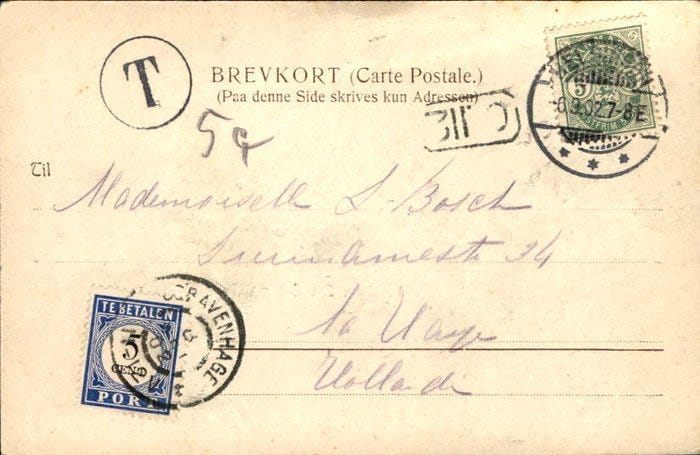 T
BREVKORT (Carte Postale.)
(Paa denne Side skrives kun Adressen)
5
5
6.9.02.7-8E
Til
Mademoiselle L. Bosch
Surinamestr 34
La Haye
Hollande
'SGRAVENHAGE
TE BETALEN
5
CENT
PORT